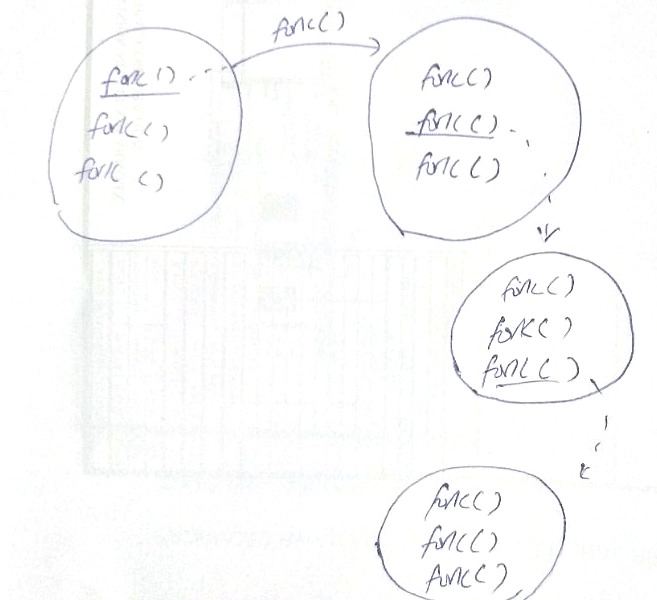 fork()
fork()
fork()
fork()
fork()
fork()
fork()
fork()
fork()
fork()
fork()
fork()
fork()